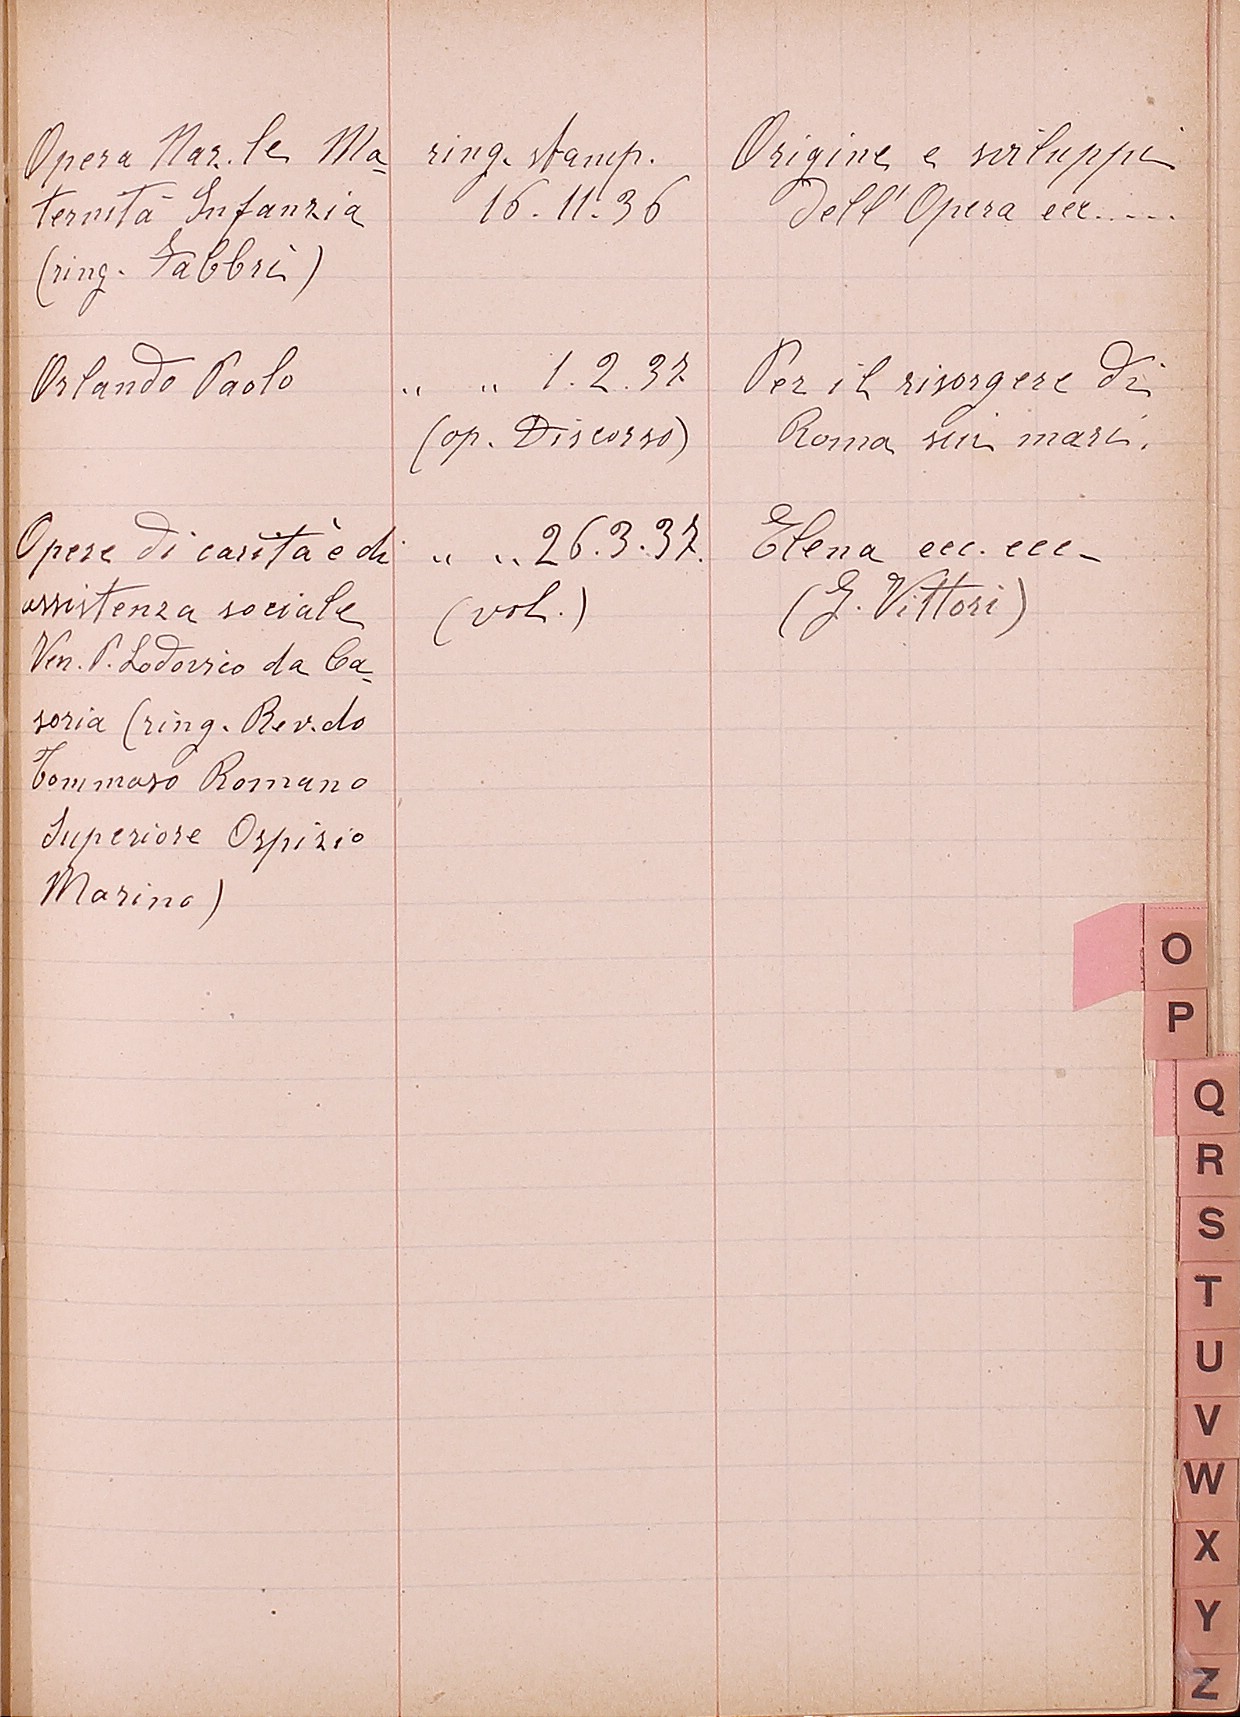 Opera Naz.le Ma-
ternità Infanzia
(ring. Fabbri)
ring. stamp.
16.11.36
Origine e sviluppi
dell'Opera ecc.....
Orlando Paolo
" " 1.2.37
(op. Discorso)
Per il risorgere di
Roma sui mari.
Opere di carità e di
assistenza sociale
Ven. P. Lodovico da Ca-
soria (ring. Rev.do
Tommaso Romano
Superiore Ospizio
Marino)
" " 26.3.37.
(vol.)
Elena ecc. ecc-
(G. Vittori)
O
P
Q
R
S
T
U
V
W
X
Y
Z